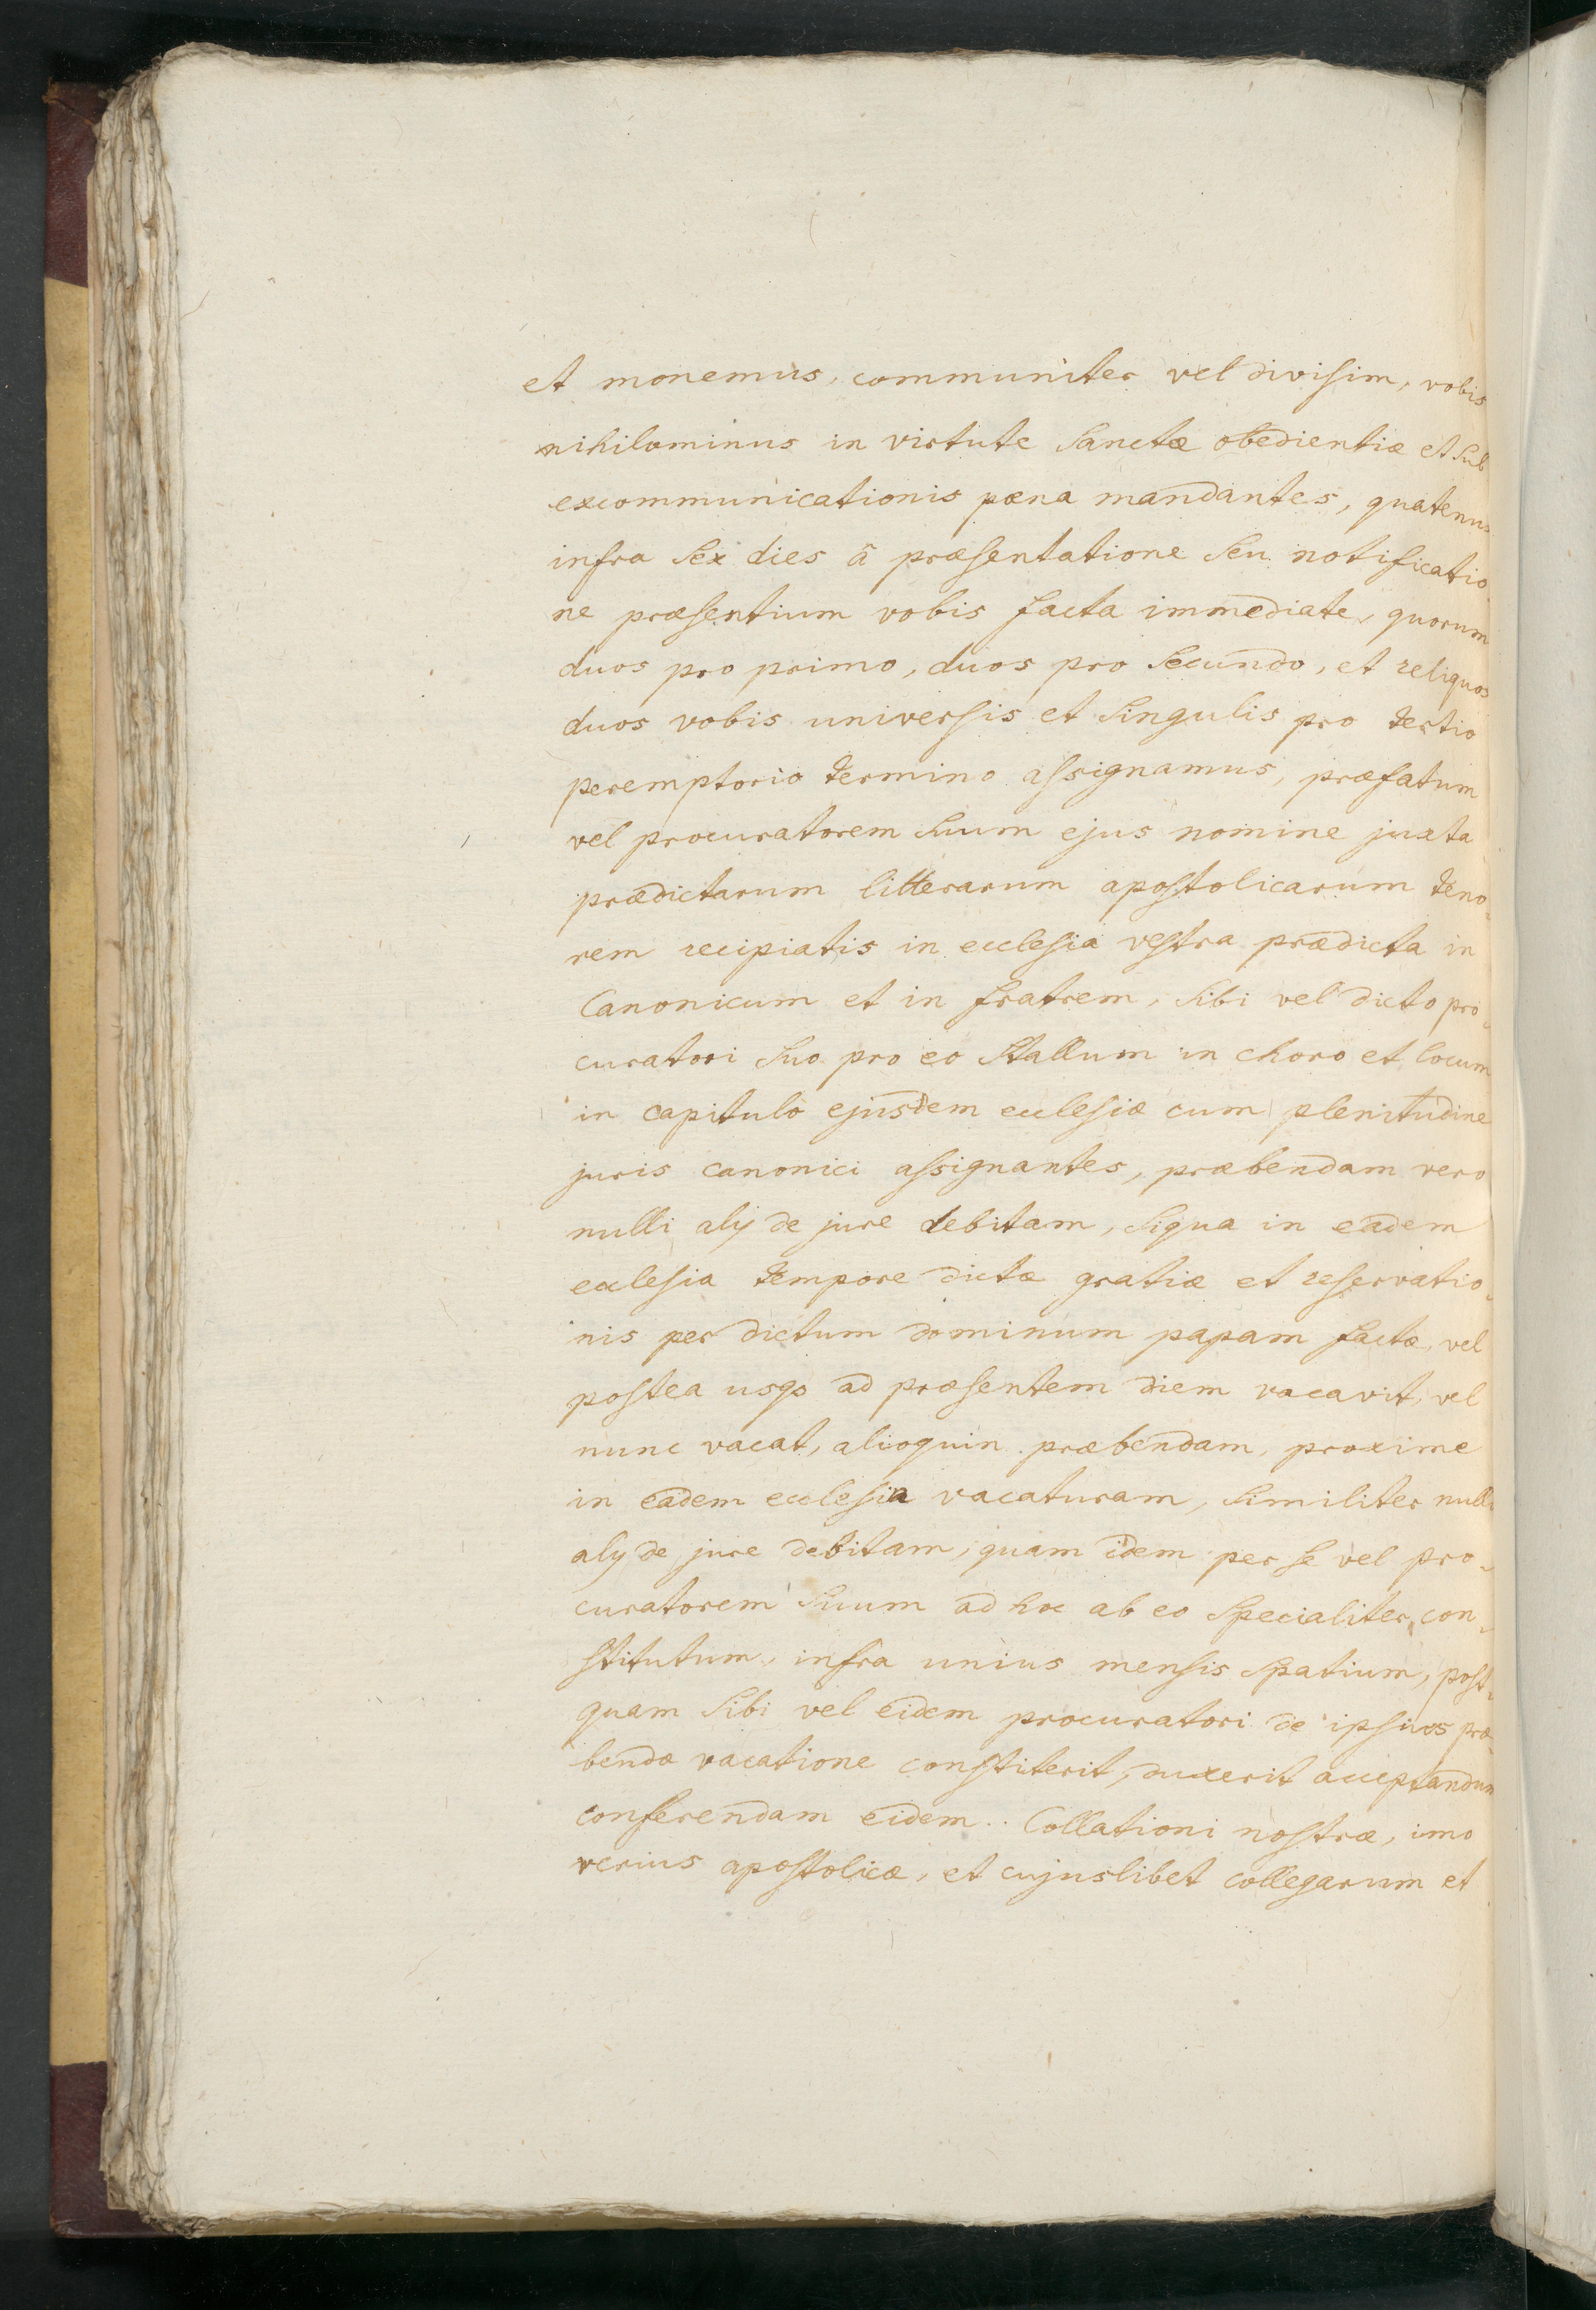 et monemus, communiter vel divisim, vobis
nihilominus in virtute Sanctæ obedientiæ et Sub
excommunicationis pœna mandantes, quatenus
infra Sex dies â præsentatione Seu notificatio
ne præsentium vobis facta immediate, quorum
duos pro primo, duos pro Secundo, et reliquos
duos vobis universis et Singulis pro tertio
peremptorio termino assignamus, præfatum
vel procuratorem Suum ejus nomine juxta
prædictarum litterarum apostolicarum teno-
rem recipiatis in ecclesia vestra prædicta in
Canonicum et in fratrem, Sibi vel dicto pro-
curatori Suo pro eo Stallum in choro et locum
in capitulo ejusdem ecclesiæ cum plenitudine
juris canonici assignantes, præbendam vero
nulli alÿ de jure debitam, Siqua in eadem
ecclesia tempore dictæ gratiæ et reservatio-
nis per dictum dominum papam factæ, vel
postea usqs ad præsentem diem vacavit, vel
nunc vacat, alioquin præbendam, proxime
in eadem ecclesia vacaturam, Similiter nulli
alÿ de jure debitam, quam idem per Se vel pro-
curatorem Suum ad hoc ab eo Specialiter con-
stitutum, infra unius mensis Spatium, post-
quam Sibi vel eidem procuratori de ipsius præ-
bendæ vacatione constiterit, duxerit acceptandum
conferendam eidem.. Collationi nostræ, imo
verius apostolicæ, et cujuslibet collegarum et